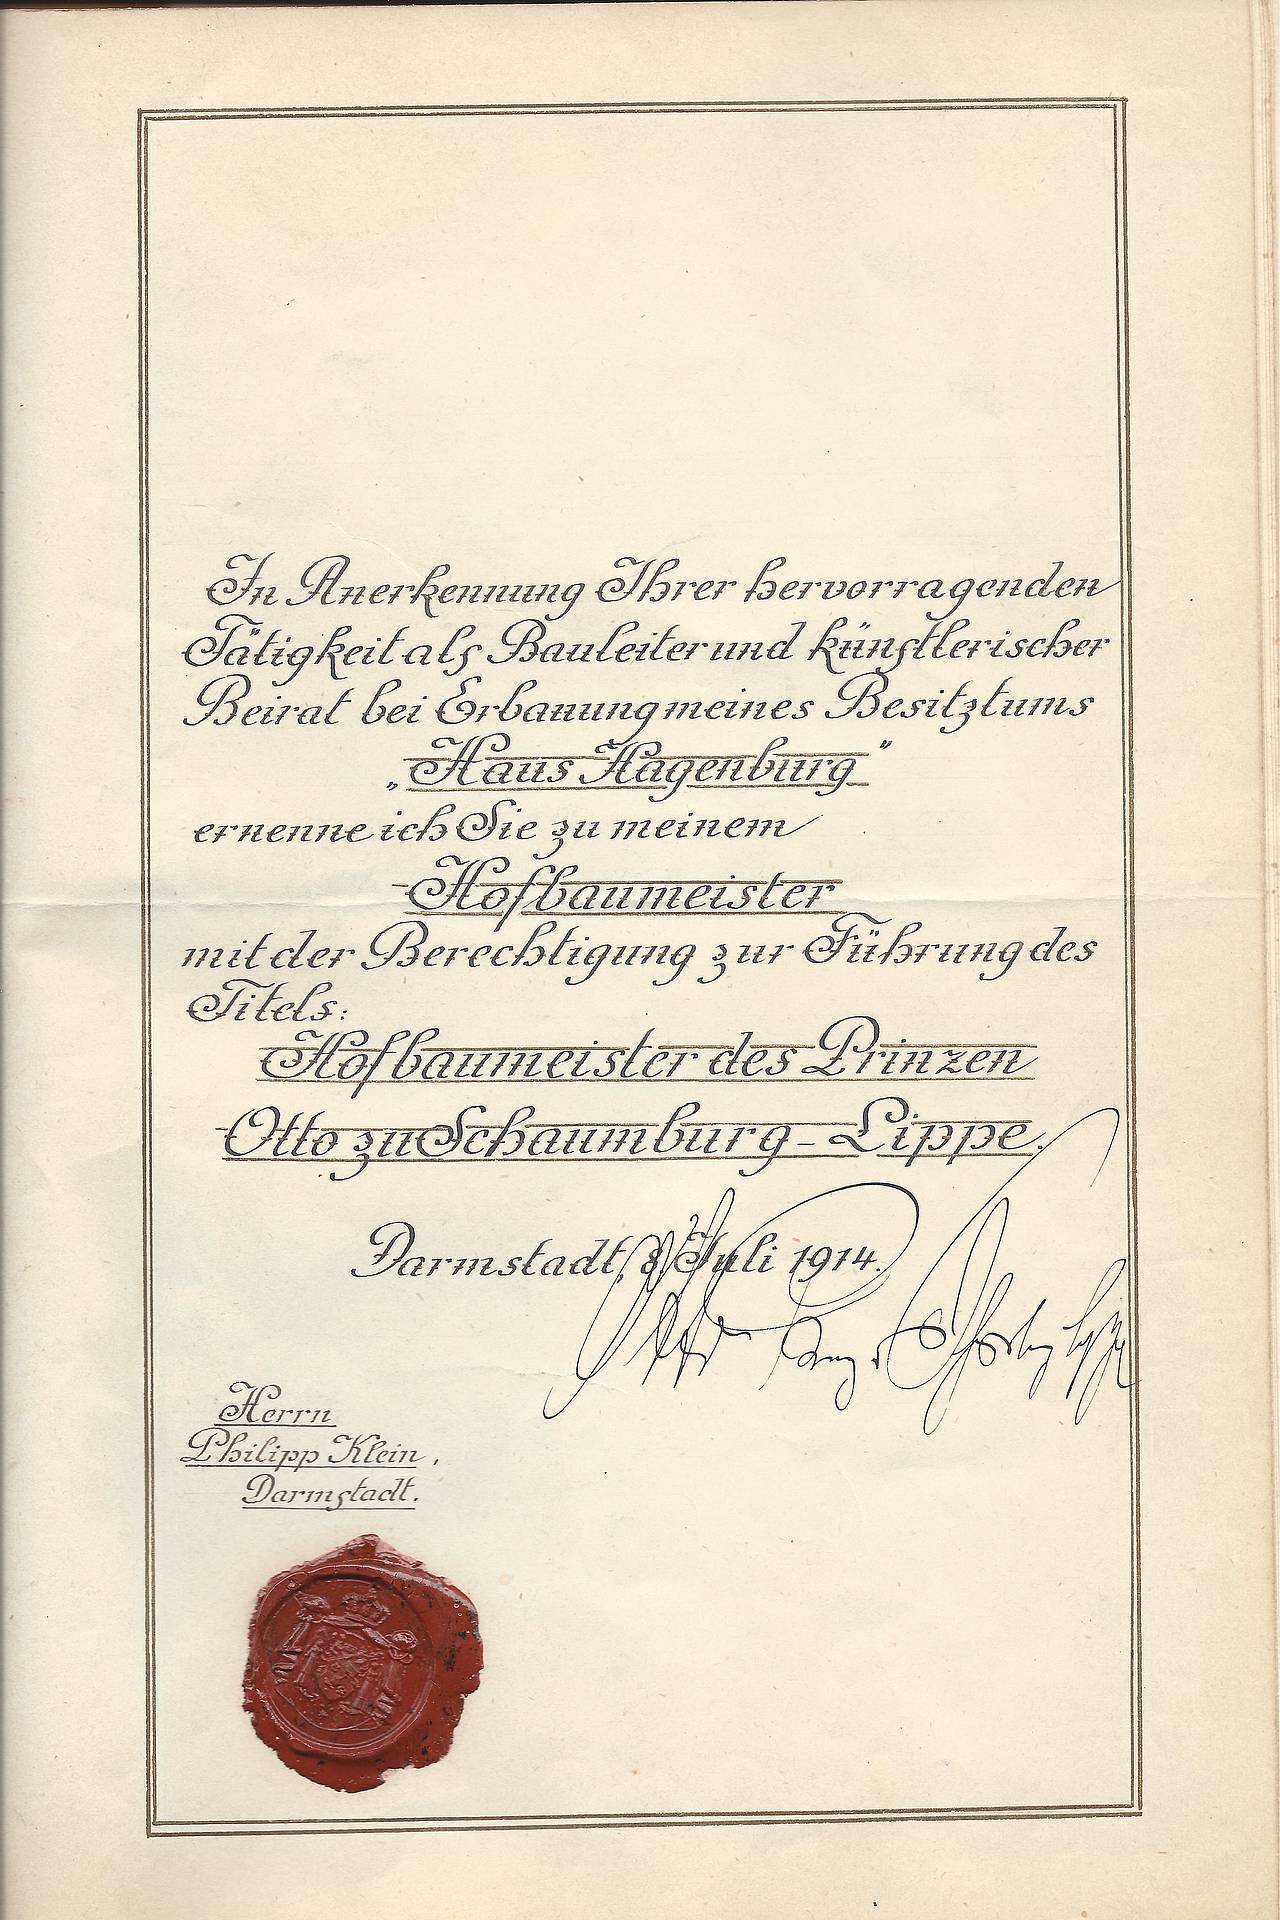 In Anerkennung Ihrer hervorragenden
Tätigkeit als Bauleiter und künstlerischer
Beirat bei Erbauung meines Besitztums
„Haus Hagenburg"
ernenne ich Sie zu meinem
Hofbaumeister
mit der Berechtigung zur Führung des
Titels:
Hofbaumeister des Prinzen
Otto zu Schaumburg-Lippe.
Darmstadt, 8. Juli 1914.
Otto Prinz zu Schaumburg Lippe
Herrn
Philipp Klein,
Darmstadt.